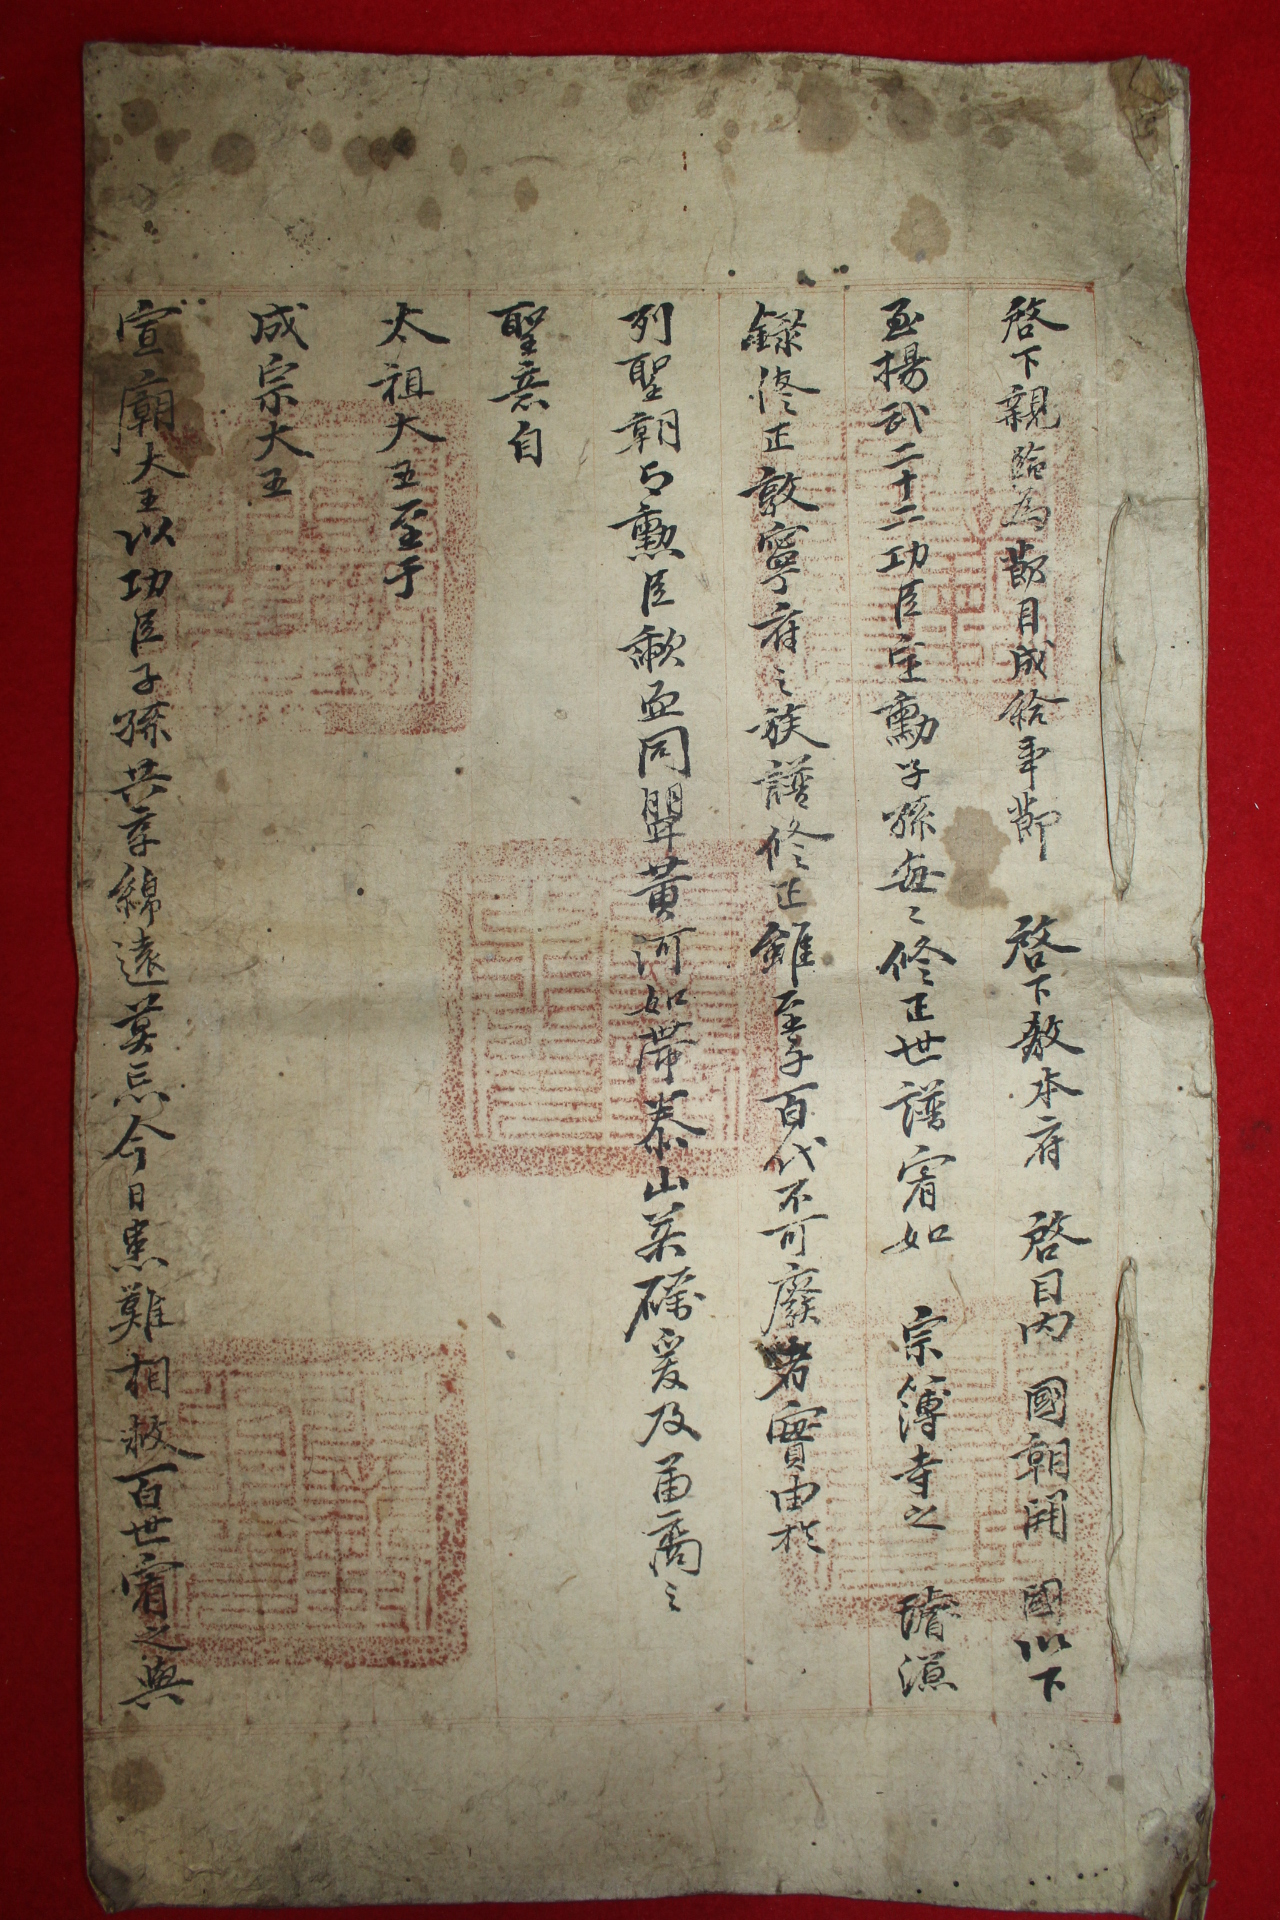 啓下親臨為節目成給事節 啓下敎本府 啓目內 國朝開 國以下
至揚武二十二功臣定勳子孫每〻修正世譜宥如 宗簿寺之 璿源
錄修正敦寧府之族譜修正雖至于百代不可廢者實由於
列聖朝与勳臣歃血同盟黃河如帶泰山若礪爰及苗裔之
聖意自
太祖大王至于
成宗大王
宣廟大王以功臣子孫共享綿遠莫忘今日患難相救百世宥之與